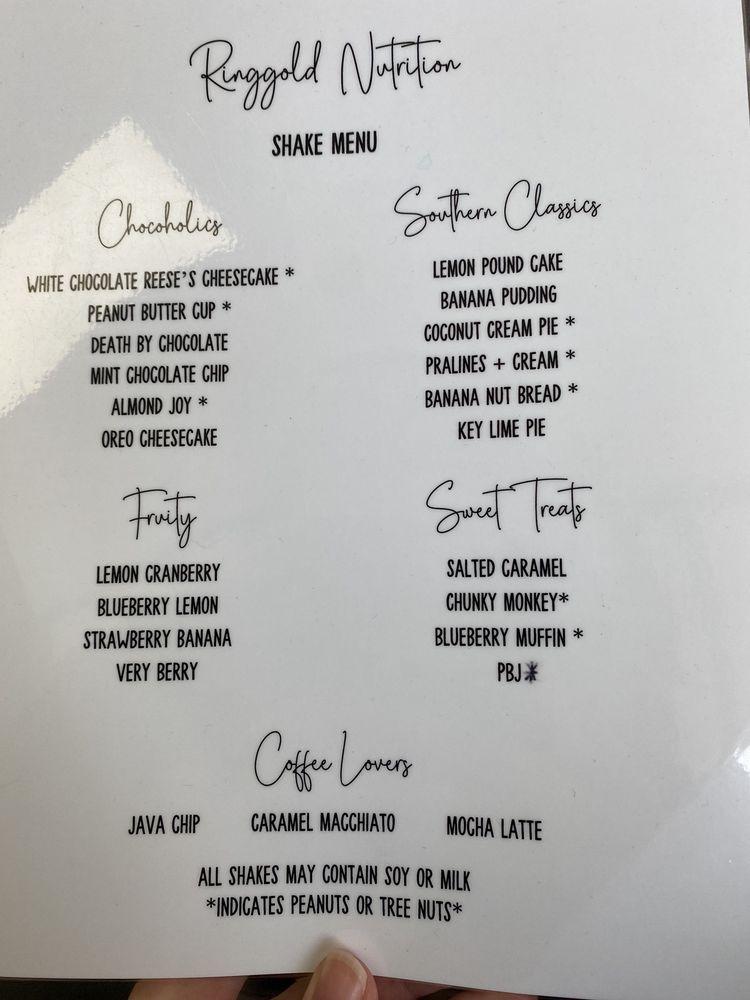 Ringgold Nutrition
SHAKE MENU
Chocoholics
WHITE CHOCOLATE REESE'S CHEESECAKE *
PEANUT BUTTER CUP *
DEATH BY CHOCOLATE
MINT CHOCOLATE CHIP
ALMOND JOY *
OREO CHEESECAKE
Southern Classics
LEMON POUND CAKE
BANANA PUDDING
COCONUT CREAM PIE *
PRALINES + CREAM *
BANANA NUT BREAD *
KEY LIME PIE
Fruity
LEMON CRANBERRY
BLUEBERRY LEMON
STRAWBERRY BANANA
VERY BERRY
Sweet Treats
SALTED CARAMEL
CHUNKY MONKEY*
BLUEBERRY MUFFIN *
PBJ*
Coffee Lovers
JAVA CHIP CARAMEL MACCHIATO MOCHA LATTE
ALL SHAKES MAY CONTAIN SOY OR MILK
*INDICATES PEANUTS OR TREE NUTS*